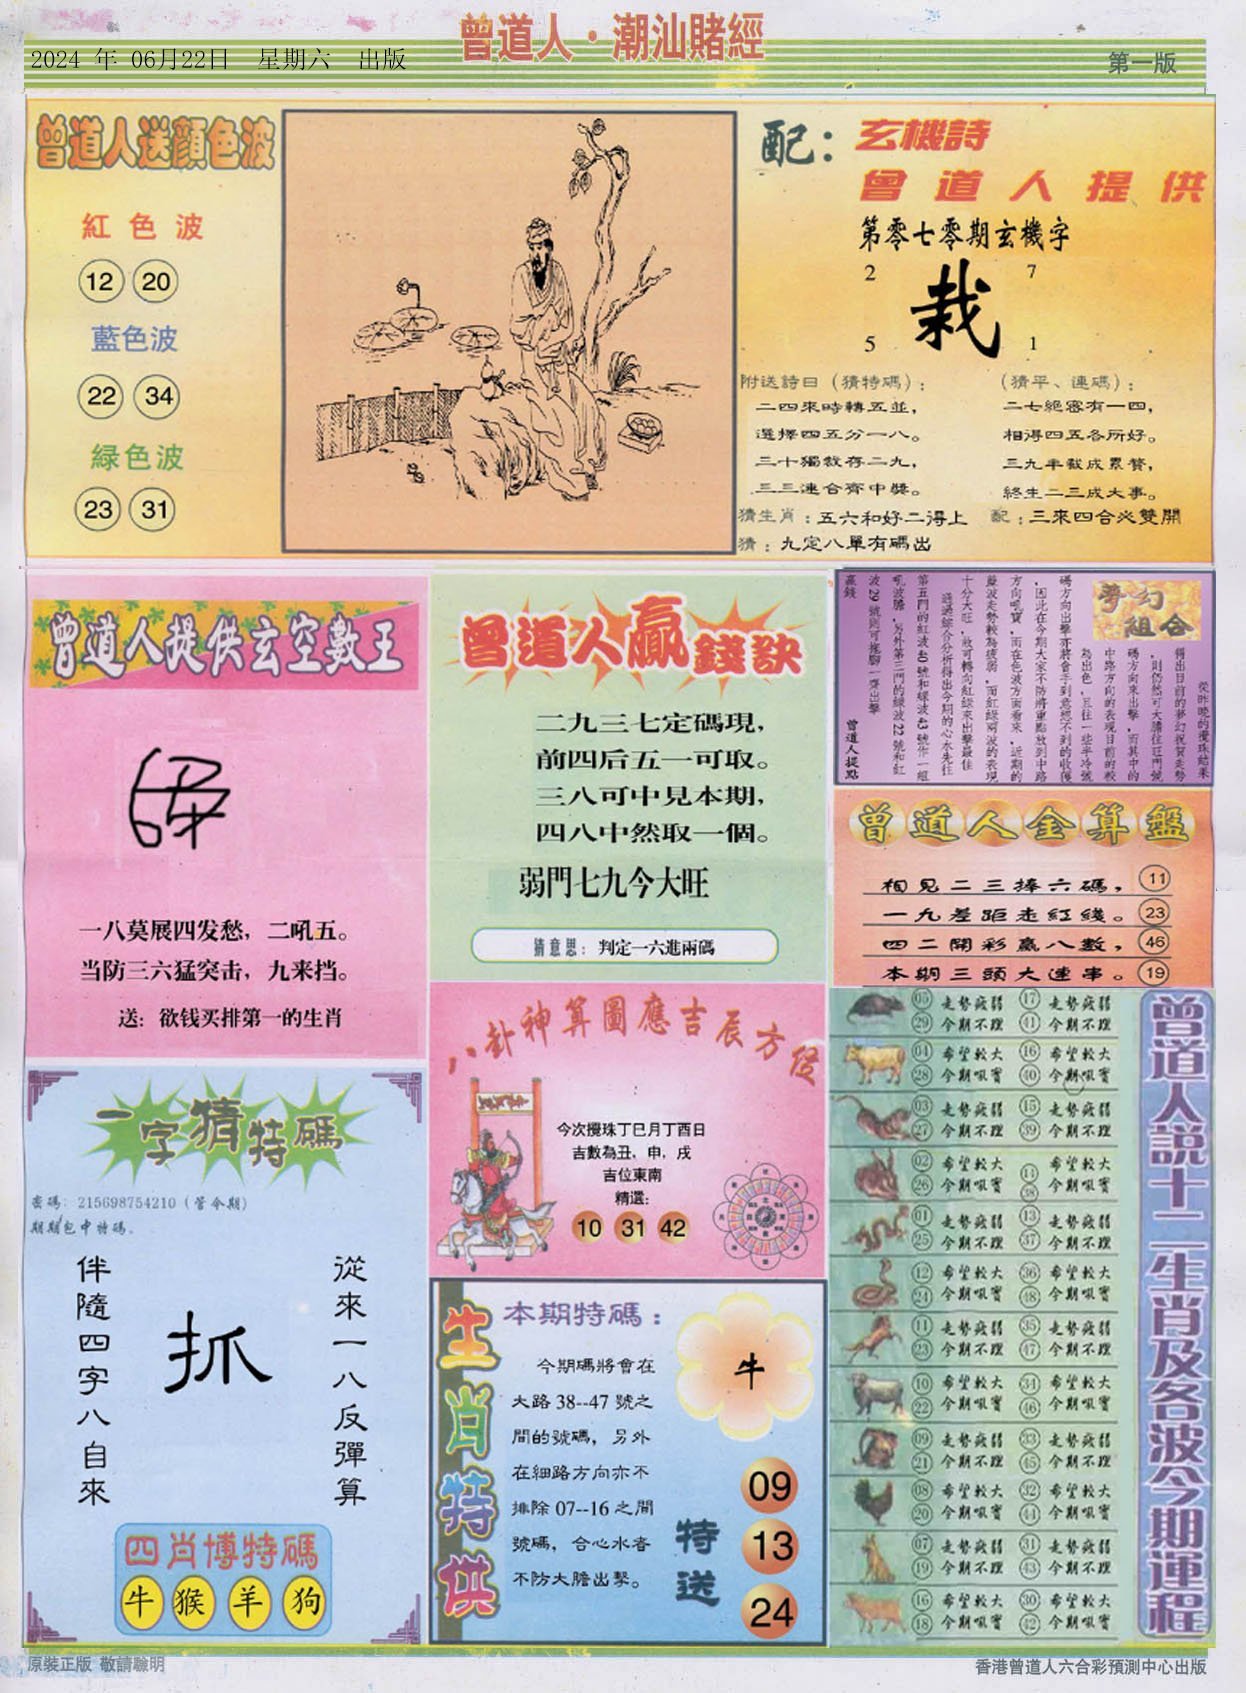 曾道人·潮汕賭經
2024 年 06月22日 星期六 出版
第一版
曾道人送顏色波
紅色波
12 20
藍色波
22 34
綠色波
23 31
配：玄機詩
曾道人提供
第零七零期玄機字
2 7
栽
5 1
附送詩曰（猜特碼）：
二四來時轉五並，
選擇四五分一八。
三十獨裁存二九，
三三連合齊中獎。
（猜平、連碼）：
二七絕密有一四，
相得四五各所好。
三九半載成累贅，
終生二三成大事。
猜生肖：五六和好二得上
配：三來四合必雙開
猜：九定八單有碼出
曾道人提供玄空數王
一八莫展四发愁，二吼五。
当防三六猛突击，九来挡。
送：欲钱买排第一的生肖
曾道人贏錢訣
二九三七定碼現，
前四后五一可取。
三八可中見本期，
四八中然取一個。
弱門七九今大旺
猜意思：判定一六進兩碼
夢幻組合
從昨晚的攪珠結果
得出目前的夢幻祝賀走勢
，則仍然可大膽往旺門號
碼方向來出擊，而其中的
中路方向的表現目前的較
為出色，且往一些半冷號
碼方向出擊亦將會手到意想不到的收穫
，因此在今期大家不防將重點放到中路
方向吼寶，而在色波方面看來，近期的
藍波走勢較為疲弱，而紅綠兩波的表現
十分大旺，故可轉向紅綠來出擊最佳
通過綜合分析得出今期的心水先往
第五門的紅波40號和綠波43號作一組
吼波膽，另外第三門的綠波22號和紅
波29號則可拖腳一齊出擊
贏錢
曾道人提點
曾道人金算盤
相見二三捧六碼， 11
一九差距走紅綫。 23
四二開彩贏八數， 46
本期三頭大連串。 19
八卦神算圖應吉辰方位
今次攪珠丁巳月丁酉日
吉數為丑，申，戌
吉位東南
精選：
10 31 42
一字猜特碼
密碼：215698754210（管今期）
期期包中特碼。
從來一八反彈算
抓
伴隨四字八自來
四肖博特碼
牛 猴 羊 狗
生肖特供
本期特碼：
今期碼將會在
大路 38--47 號之
間的號碼，另外
在細路方向亦不
排除 07--16 之間
號碼，合心水者
不防大膽出擊。
牛
特送
09
13
24
曾道人説十二生肖及各波今期運程
05 走勢疲弱 17 走勢疲弱
29 今期不理 41 今期不理
04 希望較大 16 希望較大
28 今期吼寶 40 今期吼寶
03 走勢疲弱 15 走勢疲弱
27 今期不理 39 今期不理
02 希望較大
26 今期吼寶 38 今期吼寶
希望較大
01 走勢疲弱 13 走勢疲弱
25 今期不理 37 今期不理
12 希望較大 36 希望較大
24 今期吼寶 48 今期吼寶
11 走勢疲弱 35 走勢疲弱
23 今期不理 47 今期不理
10 希望較大 34 希望較大
22 今期吼寶 46 今期吼寶
09 走勢疲弱 33 走勢疲弱
21 今期不理 45 今期不理
08 希望較大 32 希望較大
20 今期吼寶 44 今期吼寶
07 走勢疲弱 31 走勢疲弱
19 今期不理 43 今期不理
16 希望較大 30 希望較大
18 今期吼寶 42 今期吼寶
原裝正版 敬請聯明
香港曾道人六合彩預測中心出版